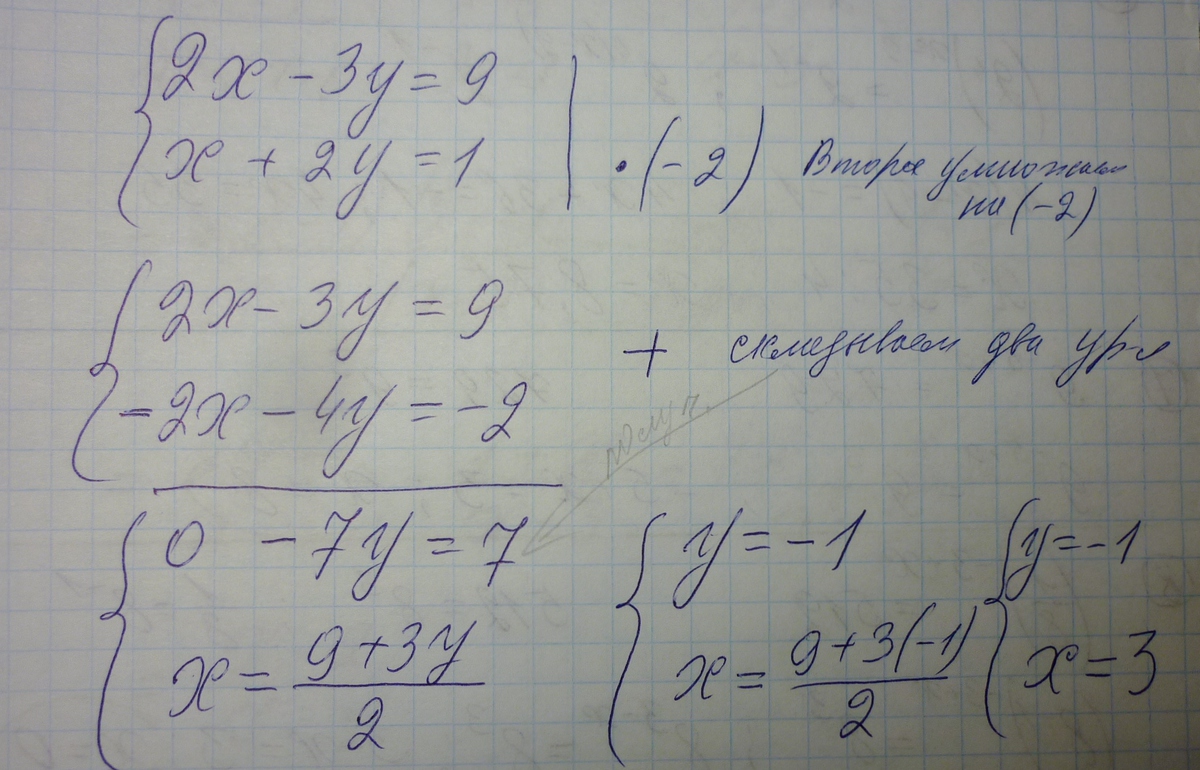 2x - 3y = 9
x + 2y = 1 | · (-2) Второе умножаем
на (-2)
2x - 3y = 9
-2x - 4y = -2
+ складываем два ур-я
получ.
0 - 7y = 7
x = (9 + 3y)/2
y = -1
x = (9 + 3(-1))/2
y = -1
x = 3